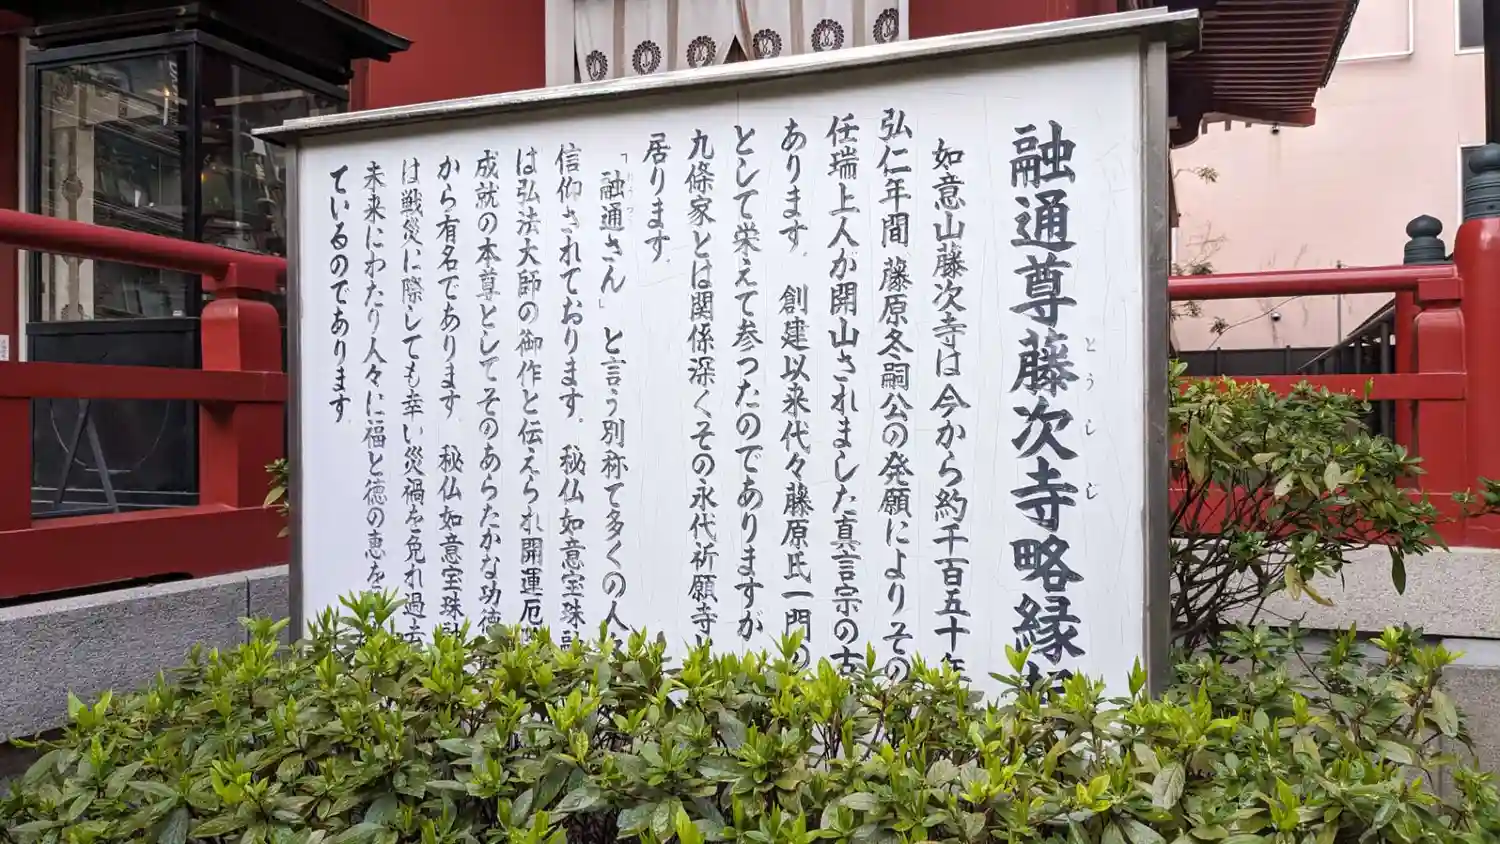 融通尊藤次寺略縁
とうじじ
如意山藤次寺は今から約千百五十年
弘仁年間 藤原冬嗣公の発願によりその
任瑞上人が開山されました真言宗の古
あります。 創建以来代々藤原氏一門の
として栄えて参つたのでありますが
九條家とは関係深くその永代祈願寺
居ります。
「融通さん」 と言う別称で多くの人々
ゆうづう
信仰されております。 秘仏如意宝珠融
は弘法大師の御作と伝えられ開運厄
成就の本尊としてそのあらたかな功徳
から有名であります。 秘仏如意宝珠融
は戦災に際しても幸い災禍を免れ過去
未来にわたり人々に福と徳の恵を
ているのであります。